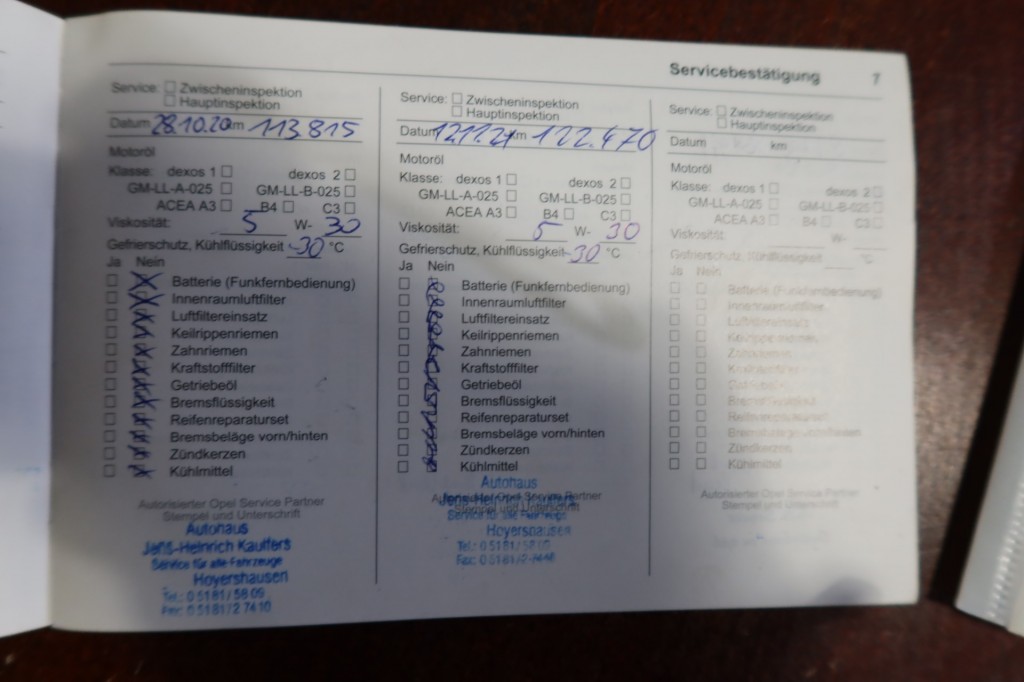 Servicebestätigung 7
Service: Zwischeninspektion
Hauptinspektion
Datum 28.10.20 km 113815
Motoröl
Klasse: dexos 1 dexos 2
GM-LL-A-025 GM-LL-B-025
ACEA A3 B4 C3
Viskosität: 5 W- 30
Gefrierschutz, Kühlflüssigkeit -30 °C
Ja Nein
Batterie (Funkfernbedienung)
Innenraumluftfilter
Luftfiltereinsatz
Keilrippenriemen
Zahnriemen
Kraftstofffilter
Getriebeöl
Bremsflüssigkeit
Reifenreparaturset
Bremsbeläge vorn/hinten
Zündkerzen
Kühlmittel
Autorisierter Opel Service Partner
Stempel und Unterschrift
Autohaus
Jens-Heinrich Kauffers
Service für alle Fahrzeuge
Hoyershausen
Tel.: 05181/5809
Fax: 05181/27410
Service: Zwischeninspektion
Hauptinspektion
Datum km 122.470
Motoröl
Klasse: dexos 1 dexos 2
GM-LL-A-025 GM-LL-B-025
ACEA A3 B4 C3
Viskosität: 5 W- 30
Gefrierschutz, Kühlflüssigkeit -30 °C
Ja Nein
Batterie (Funkfernbedienung)
Innenraumluftfilter
Luftfiltereinsatz
Keilrippenriemen
Zahnriemen
Kraftstofffilter
Getriebeöl
Bremsflüssigkeit
Reifenreparaturset
Bremsbeläge vorn/hinten
Zündkerzen
Kühlmittel
Autohaus
Autorisierter Opel Service Partner
Stempel und Unterschrift
Hoyershausen
Service: Zwischeninspektion
Hauptinspektion
Datum km
Motoröl
Klasse: dexos 1 dexos 2
GM-LL-A-025 GM-LL-B-025
ACEA A3 B4 C3
Viskosität: W-
Gefrierschutz, Kühlflüssigkeit °C
Ja Nein
Batterie (Funkfernbedienung)
Innenraumluftfilter
Luftfiltereinsatz
Keilrippenriemen
Zahnriemen
Kraftstofffilter
Getriebeöl
Bremsflüssigkeit
Reifenreparaturset
Bremsbeläge vorn/hinten
Zündkerzen
Kühlmittel
Autorisierter Opel Service Partner
Stempel und Unterschrift